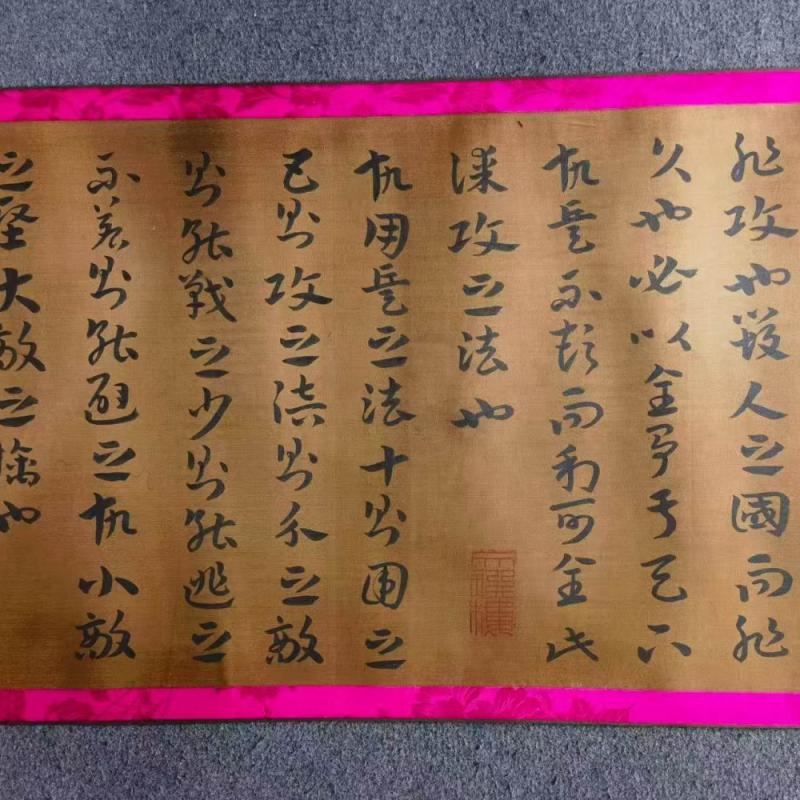 非攻也毀人之國而非
久也必以全爭于天下
故兵不頓而利可全此
謀攻之法也
故用兵之法十則圍之
五則攻之倍則分之敵
則能戰之少則能逃之
不若則能避之故小敵
之堅大敵之擒也